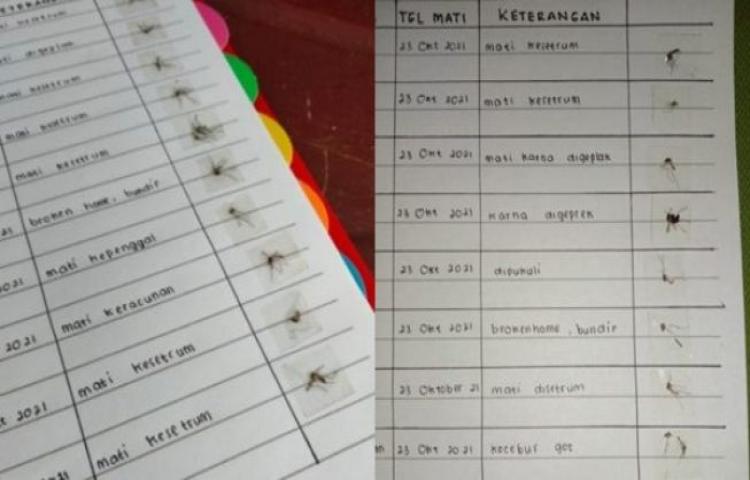 mati kesetrum
mati digeplak
mati kesetrum
mati kesetrum
mati kesetrum
broken home, bundir
2021 mati kepenggal
2021 mati keracunan
2021 mati kesetrum
2021 mati kesetrum
TGL MATI KETERANGAN
23 Okt 2021 mati kesetrum
23 Okt 2021 mati kesetrum
23 Okt 2021 mati karna digeplak
23 Okt 2021 karna digeprek
23 Okt 2021 dipukuli
23 Okt 2021 brokenhome, bundir
23 Oktober 21 mati disetrum
23 Okt 2021 kecebur got